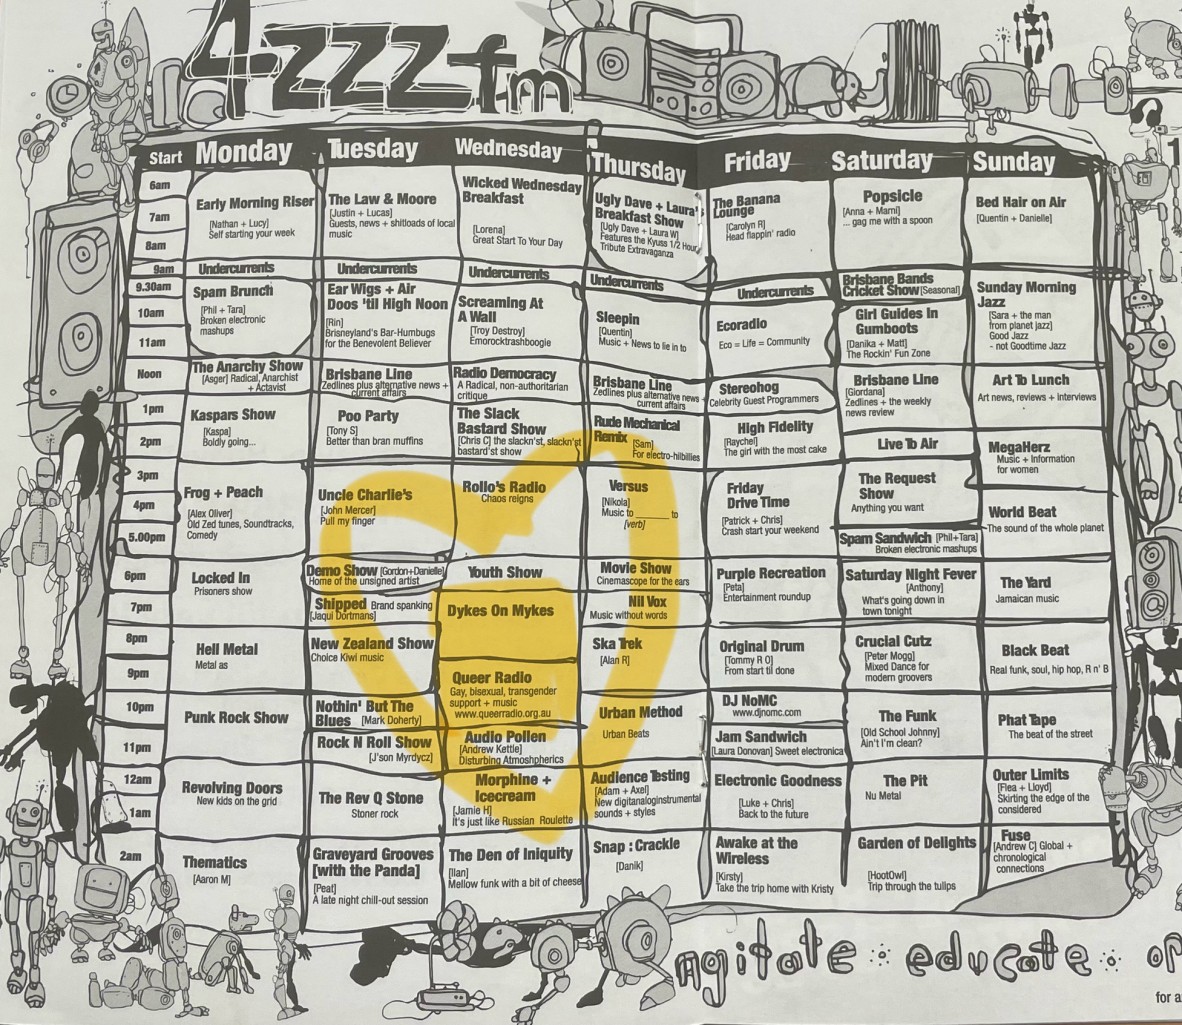 4ZZZ fm
Start
Monday
Tuesday
Wednesday
Thursday
Friday
Saturday
Sunday
6am
7am
8am
9am
9.30am
10am
11am
Noon
1pm
2pm
3pm
4pm
5.00pm
6pm
7pm
8pm
9pm
10pm
11pm
12am
1am
2am
Early Morning Riser
[Nathan + Lucy]
Self starting your week
Undercurrents
Spam Brunch
[Phil + Tara]
Broken electronic
mashups
The Anarchy Show
[Asger] Radical, Anarchist
+ Actavist
Kaspars Show
[Kaspa]
Boldly going...
Frog + Peach
[Alex Oliver]
Old Zed tunes, Soundtracks,
Comedy
Locked In
Prisoners show
Hell Metal
Metal as
Punk Rock Show
Revolving Doors
New kids on the grid
Thematics
[Aaron M]
The Law & Moore
[Justin + Lucas]
Guests, news + shitloads of local
music
Undercurrents
Ear Wigs + Air
Doos 'til High Noon
[Rin]
Brisneyland's Bar-Humbugs
for the Benevolent Believer
Brisbane Line
Zedlines plus alternative news +
current affairs
Poo Party
[Tony S]
Better than bran muffins
Uncle Charlie's
[John Mercer]
Pull my finger
Demo Show [Gordon+Danielle]
Home of the unsigned artist
Shipped Brand spanking
[Jaqui Dortmans]
New Zealand Show
Choice Kiwi music
Nothin' But The
Blues [Mark Doherty]
Rock N Roll Show
[J'son Myrdycz]
The Rev Q Stone
Stoner rock
Graveyard Grooves
[with the Panda]
[Peat]
A late night chill-out session
Wicked Wednesday
Breakfast
[Lorena]
Great Start To Your Day
Undercurrents
Screaming At
A Wall
[Troy Destroy]
Emorocktrashboogie
Radio Democracy
A Radical, non-authoritarian
critique
The Slack
Bastard Show
[Chris C] the slackn'st, slackn'st
bastard'st show
Rollo's Radio
Chaos reigns
Youth Show
Dykes On Mykes
Queer Radio
Gay, bisexual, transgender
support + music
www.queerradio.org.au
Audio Pollen
[Andrew Kettle]
Disturbing Atmoshpherics
Morphine +
Icecream
[Jamie H]
It's just like Russian Roulette
The Den of Iniquity
[Ilan]
Mellow funk with a bit of cheese
Ugly Dave + Laura's
Breakfast Show
[Ugly Dave + Laura W]
Features the Kyuss 1/2 Hour
Tribute Extravaganza
Undercurrents
Sleepin
[Quentin]
Music + News to lie in to
Brisbane Line
Zedlines plus alternative news +
current affairs
Rude Mechanical
Remix [Sam]
For electro-hilbillies
Versus
[Nikola]
Music to ______ to
[verb]
Movie Show
Cinemascope for the ears
Nil Vox
Music without words
Ska Trek
[Alan R]
Urban Method
Urban Beats
Audience Testing
[Adam + Axel]
New digitanaloginstrumental
sounds + styles
Snap : Crackle
[Danik]
The Banana
Lounge
[Carolyn R]
Head flappin' radio
Undercurrents
Ecoradio
Eco = Life = Community
Stereohog
Celebrity Guest Programmers
High Fidelity
[Raychel]
The girl with the most cake
Friday
Drive Time
[Patrick + Chris]
Crash start your weekend
Purple Recreation
[Peta]
Entertainment roundup
Original Drum
[Tommy R O]
From start til done
DJ NoMC
www.djnomc.com
Jam Sandwich
[Laura Donovan] Sweet electronica
Electronic Goodness
[Luke + Chris]
Back to the future
Awake at the
Wireless
[Kirsty]
Take the trip home with Kristy
Popsicle
[Anna + Marni]
... gag me with a spoon
Brisbane Bands
Cricket Show [Seasonal]
Girl Guides In
Gumboots
[Danika + Matt]
The Rockin' Fun Zone
Brisbane Line
[Giordana]
Zedlines + the weekly
news review
Live To Air
The Request
Show
Anything you want
Spam Sandwich [Phil+Tara]
Broken electronic mashups
Saturday Night Fever
[Anthony]
What's going down in
town tonight
Crucial Cutz
[Peter Mogg]
Mixed Dance for
modern groovers
The Funk
[Old School Johnny]
Ain't I'm clean?
The Pit
Nu Metal
Garden of Delights
[HootOwl]
Trip through the tulips
Bed Hair on Air
[Quentin + Danielle]
Sunday Morning
Jazz
[Sara + the man
from planet jazz]
Good Jazz
- not Goodtime Jazz
Art To Lunch
Art news, reviews + Interviews
MegaHerz
Music + Information
for women
World Beat
The sound of the whole planet
The Yard
Jamaican music
Black Beat
Real funk, soul, hip hop, R n' B
Phat Tape
The beat of the street
Outer Limits
[Flea + Lloyd]
Skirting the edge of the
considered
Fuse
[Andrew C] Global +
chronological
connections
agitate : educate : or
for a